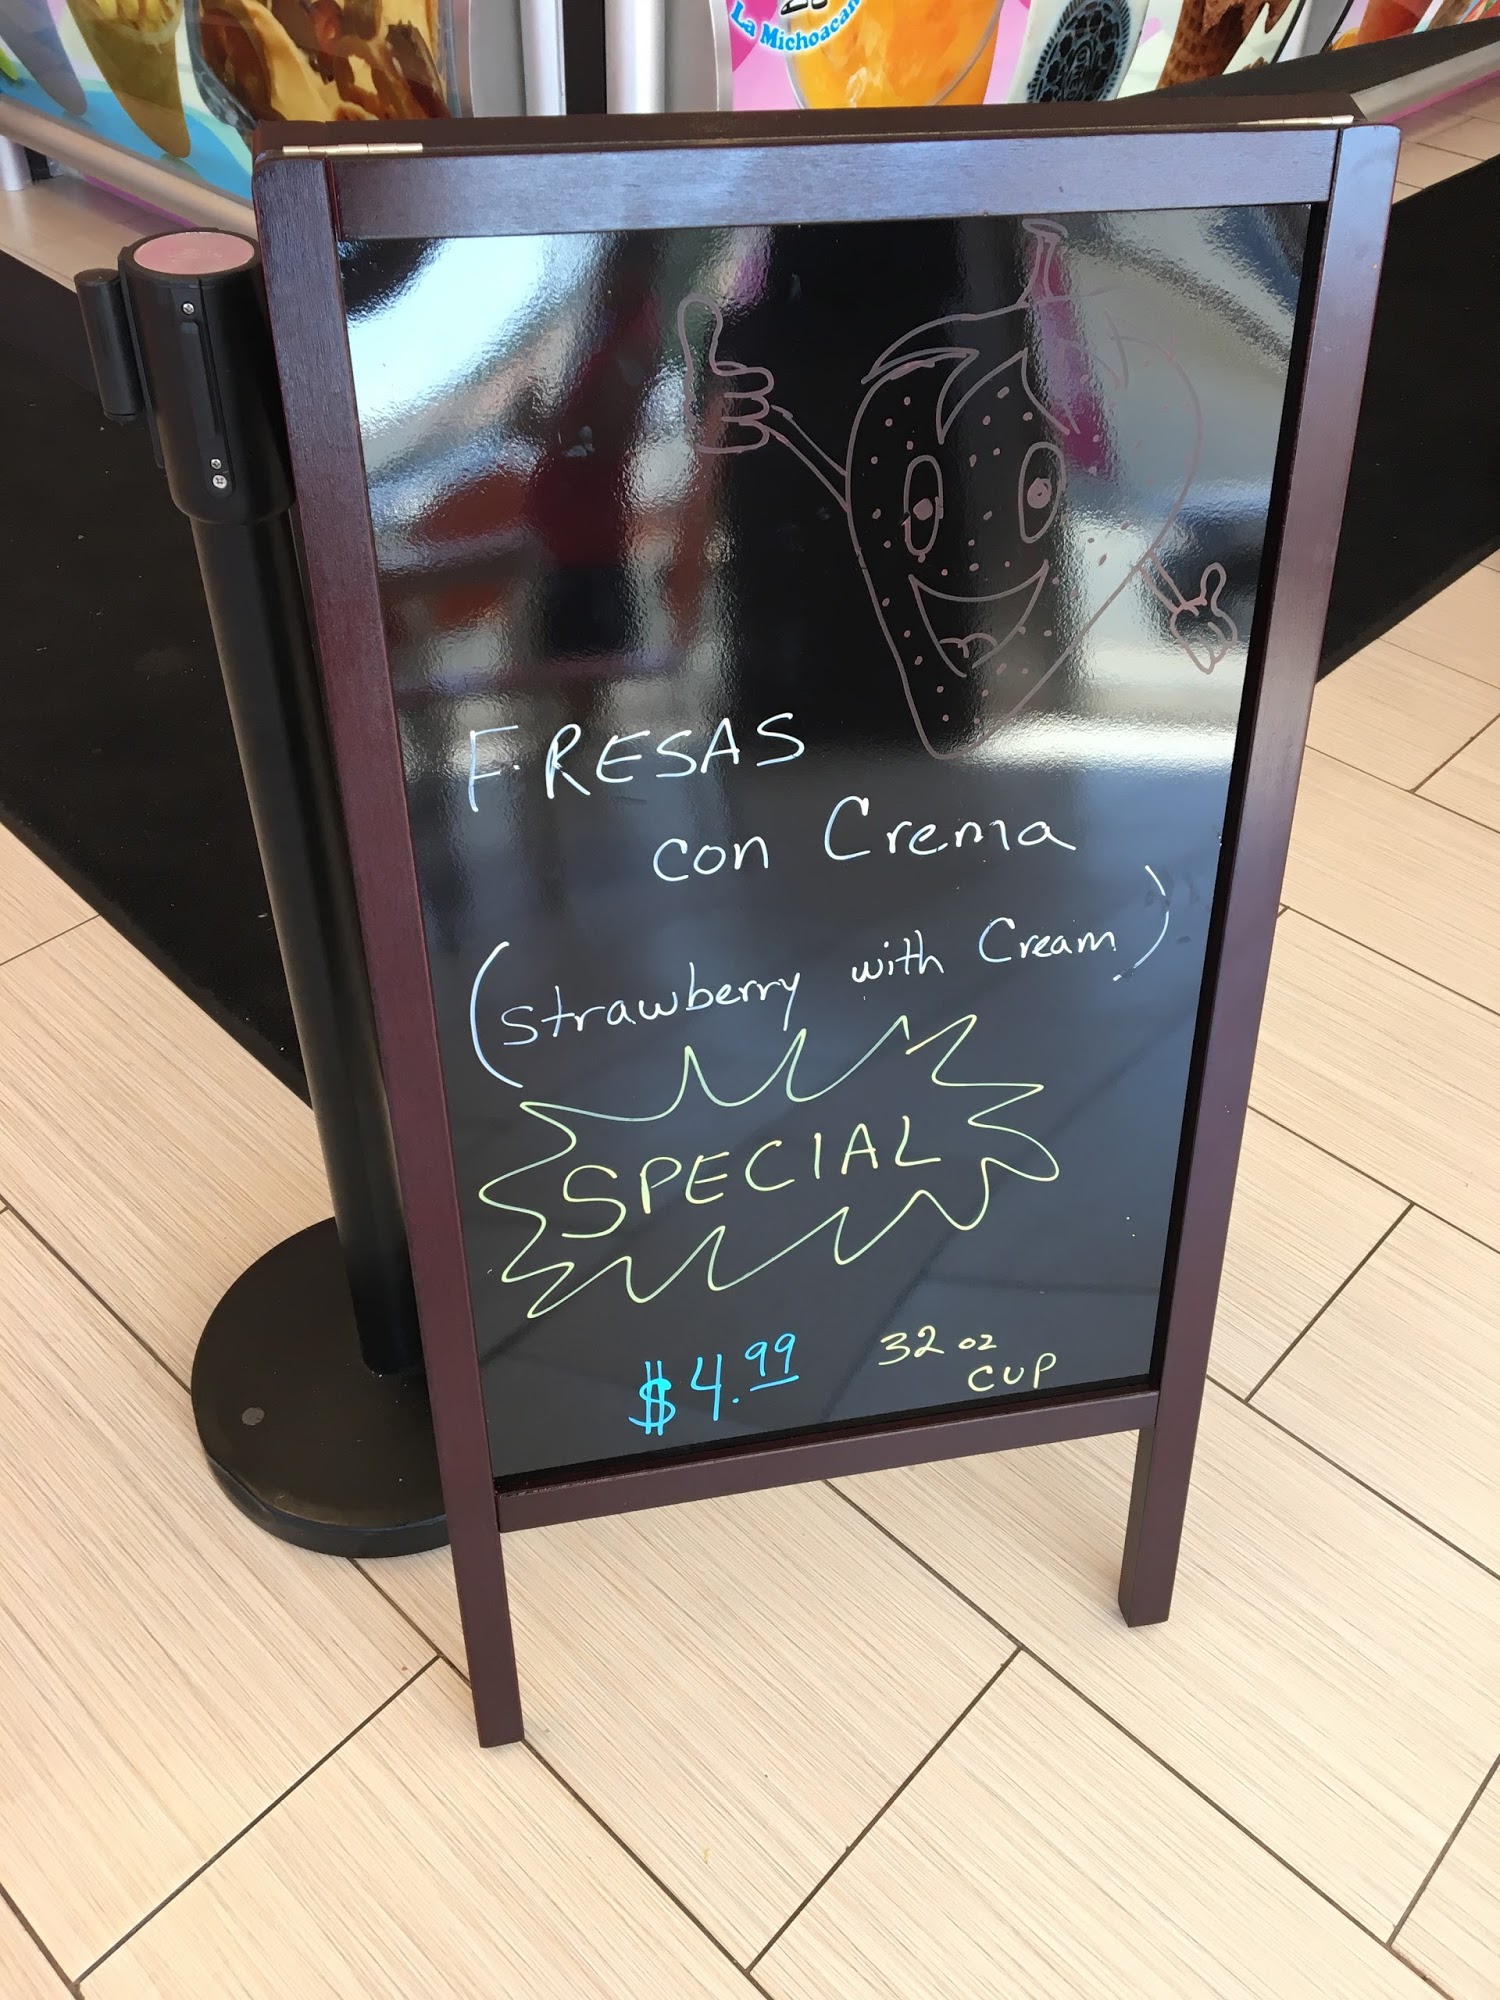 La Michoacan
FRESAS
con Crema
(strawberry with Cream)
SPECIAL
$4.99
32 oz
CUP